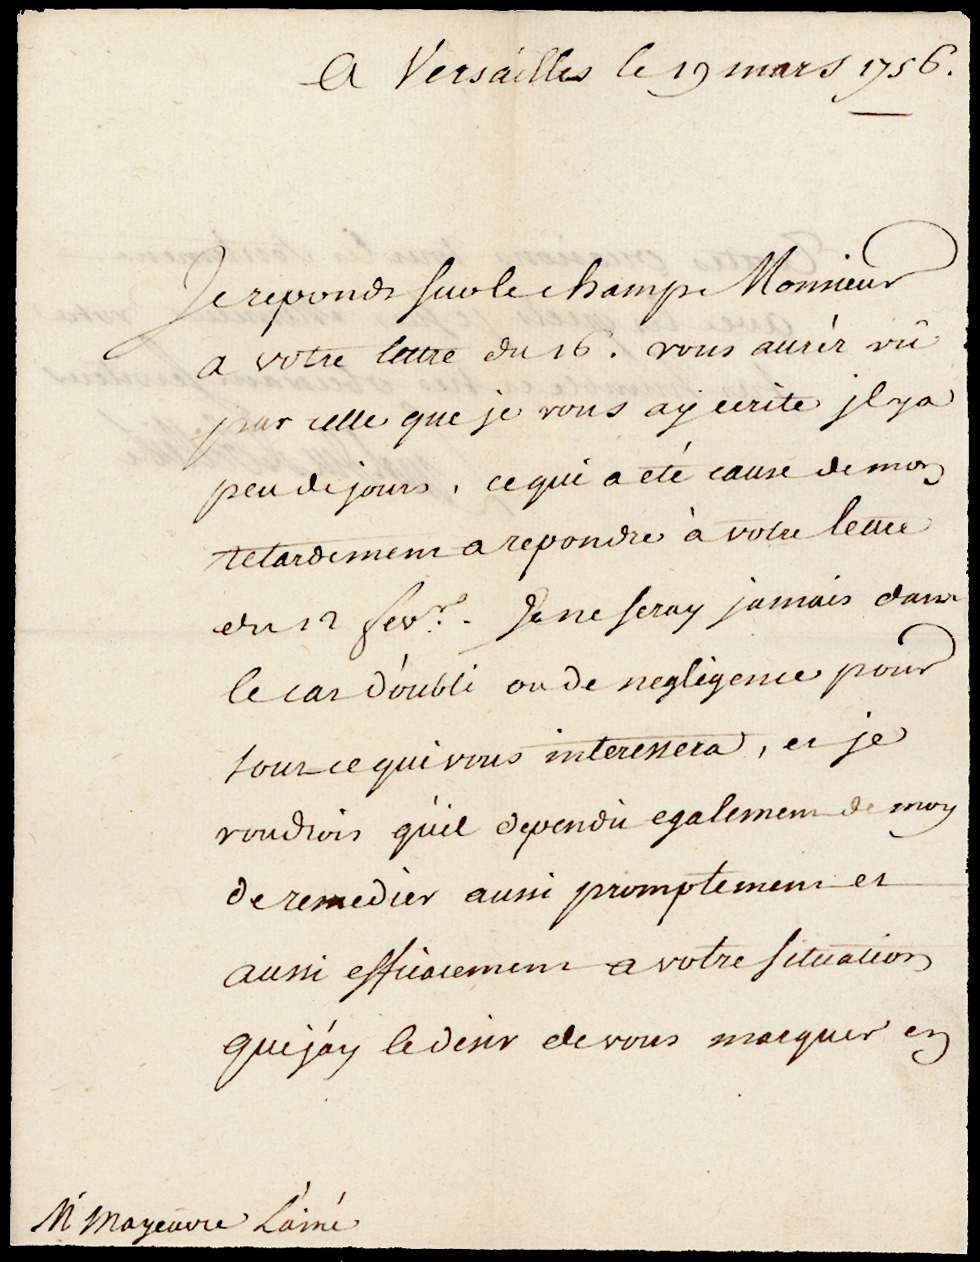 A Versailles le 19 mars 1756.
Je reponds sur le champ Monsieur
a votre lettre du 16. vous aurér vû
par celle que je vous ay ecrite jl y a
peu de jours, ce qui a eté cause de mon
retardement a repondre à votre lettre
du 12 fevr. Je ne seray jamais dans
le cas d'oubli ou de negligence pour
tout ce qui vous interessera, et je
voudrois qu'il dependit egalement de moy
de remedier aussi promptement et
aussi efficacement a votre situation
que j'ay le desir de vous marquer en
Mr Mayeuvre L'ainé